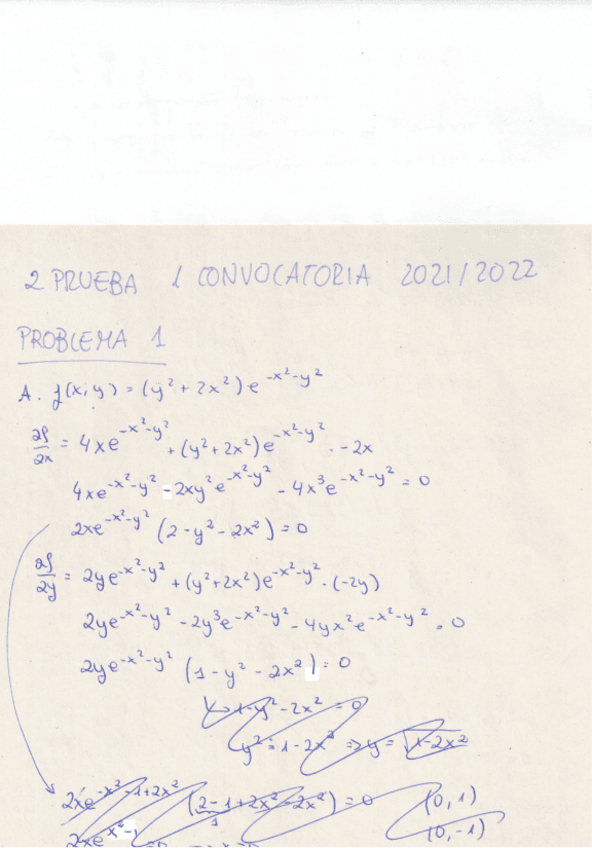 2 PRUEBA 1 CONVOCATORIA 2021/2022
PROBLEMA 1
A. f(x,y) = (y² + 2x²) e^{-x²-y²}
∂f/∂x = 4xe^{-x²-y²} + (y²+2x²)e^{-x²-y²} · -2x
4xe^{-x²-y²} - 2xy²e^{-x²-y²} - 4x³e^{-x²-y²} = 0
2xe^{-x²-y²} (2-y²-2x²) = 0
∂f/∂y = 2ye^{-x²-y²} + (y²+2x²)e^{-x²-y²} · (-2y)
2ye^{-x²-y²} - 2y³e^{-x²-y²} - 4yx²e^{-x²-y²} = 0
2ye^{-x²-y²} (1-y²-2x²) = 0
1-y²-2x² = 0
y² = 1-2x² => y = √1-2x²
2xe^{-x²-1+2x²} (2-1+2x²-2x²) = 0 (0,1)
1 (0,-1)
2xe^{x²-1}